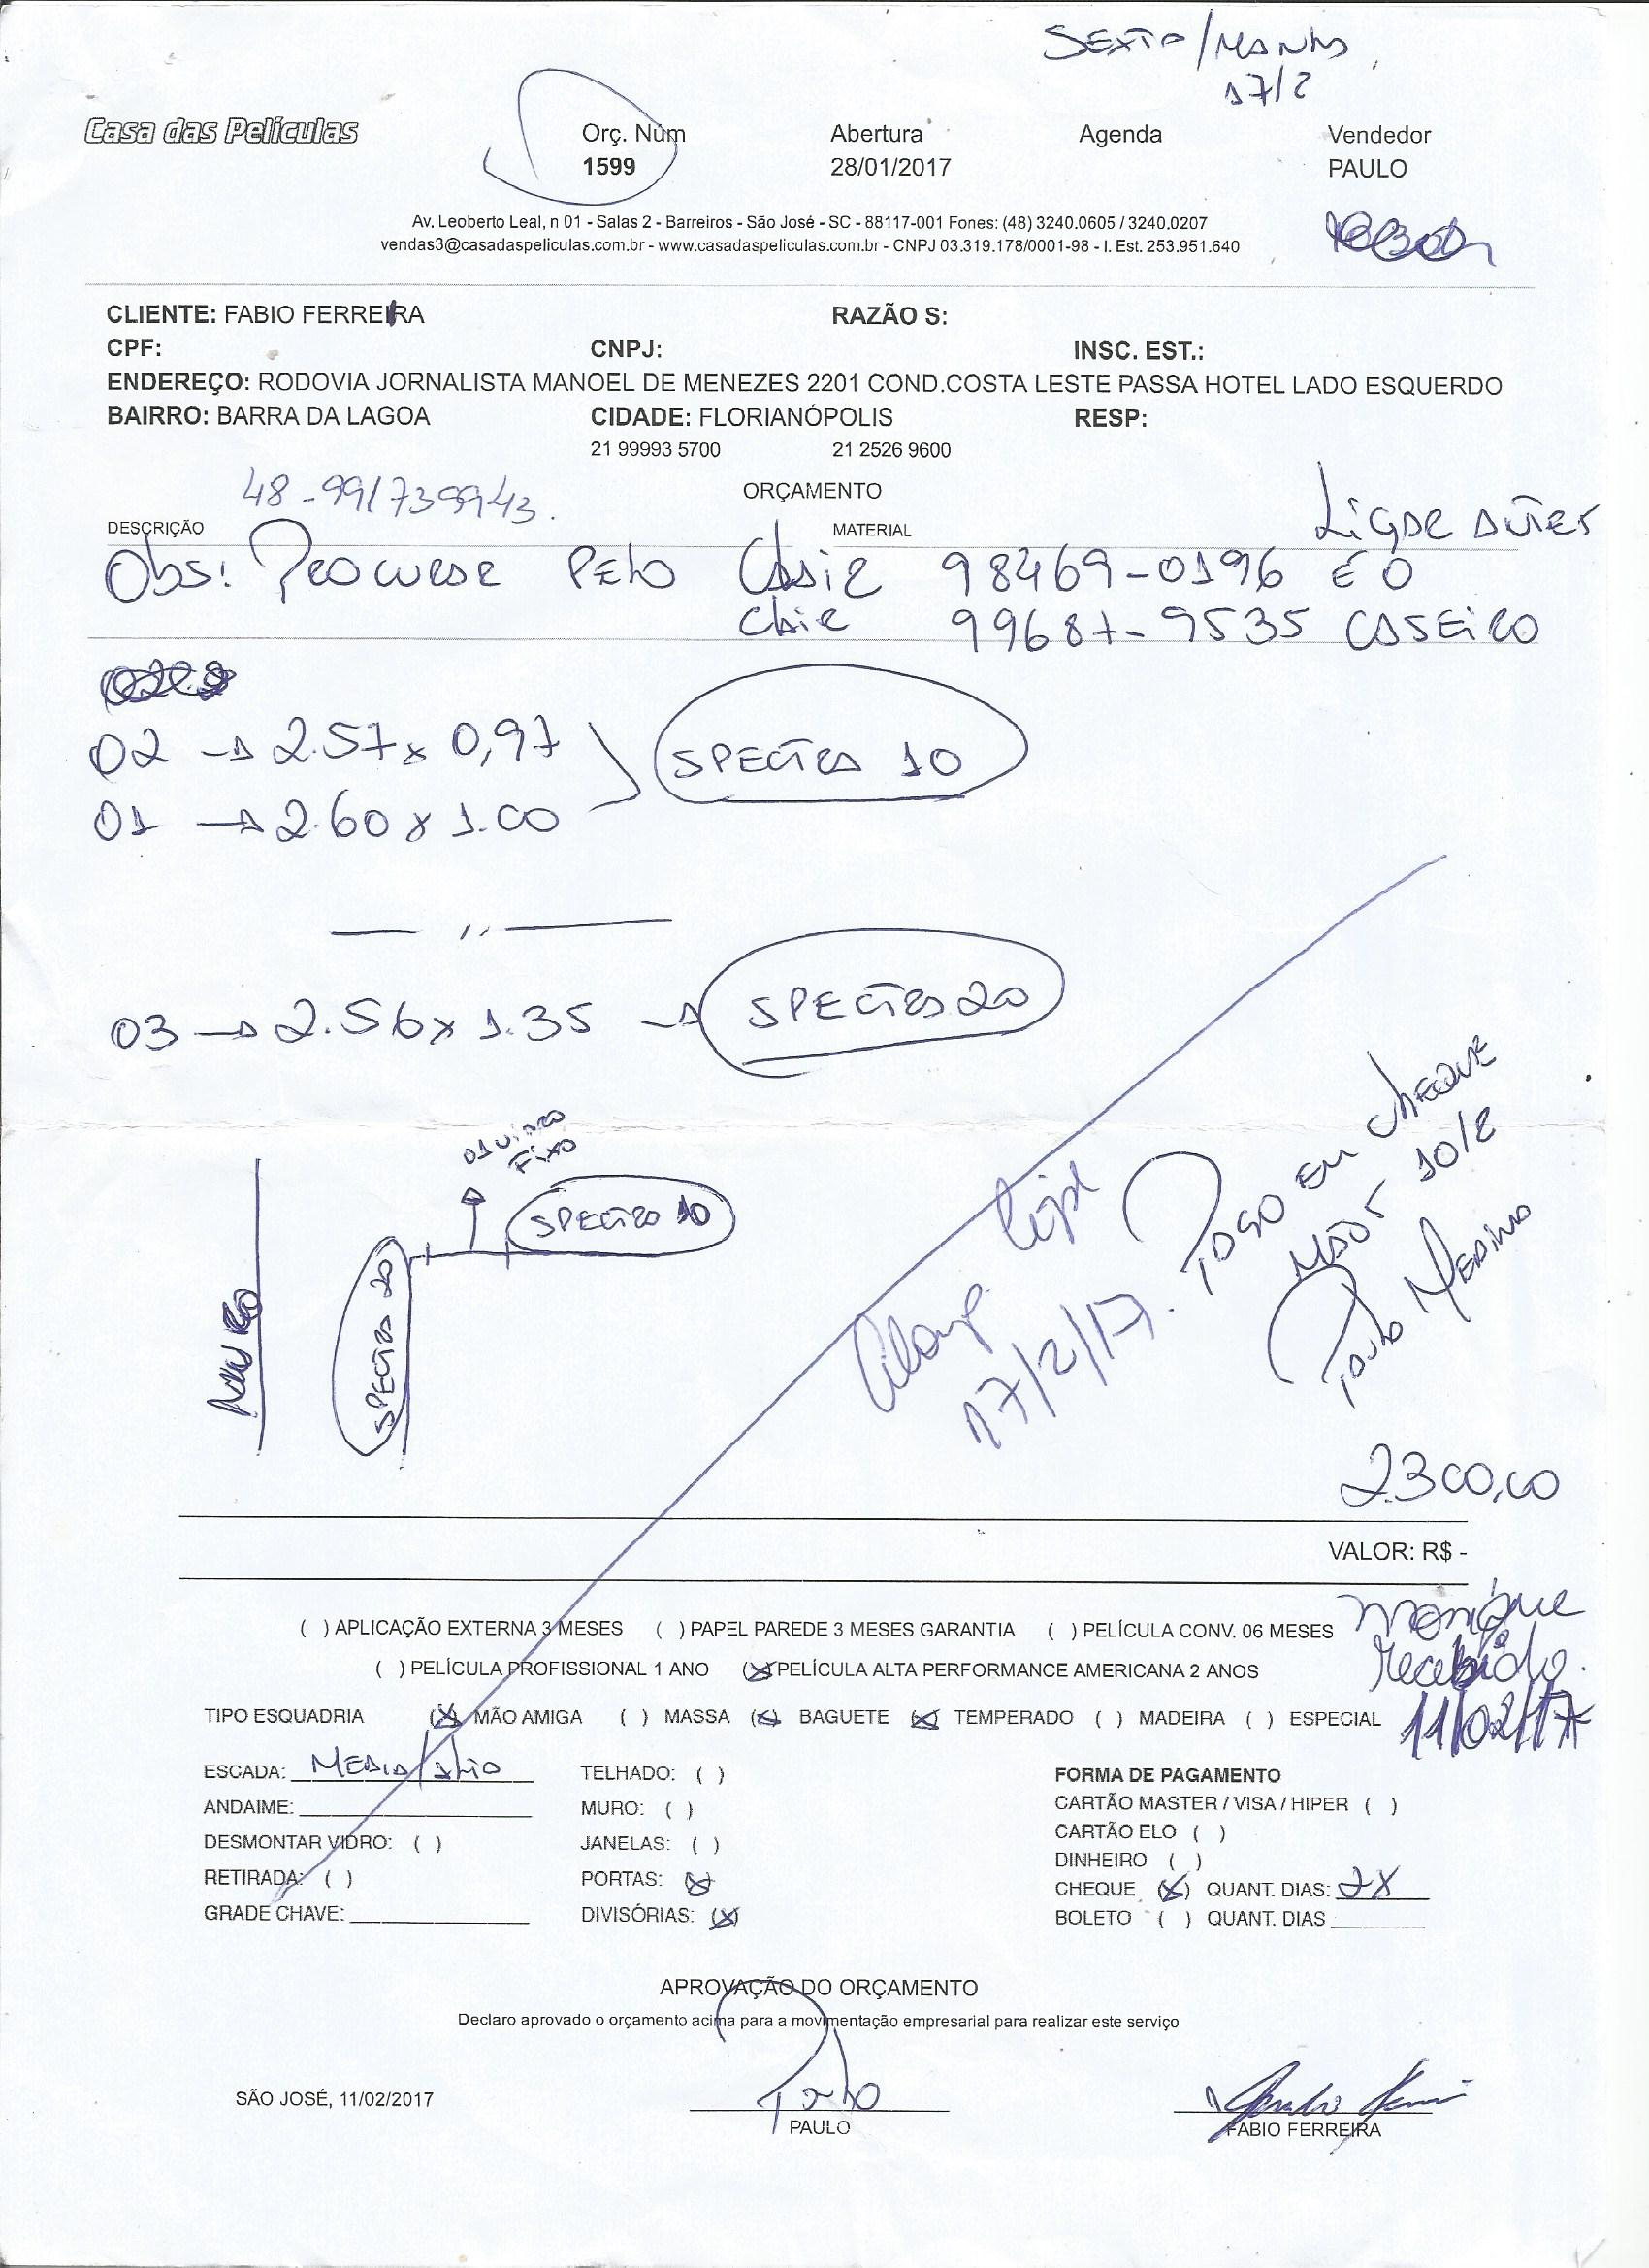 SEXTA/MANHÃ
17/2
Casa das Películas
Orç. Núm Abertura Agenda Vendedor
1599 28/01/2017 PAULO
Av. Leoberto Leal, n 01 - Salas 2 - Barreiros - São José - SC - 88117-001 Fones: (48) 3240.0605 / 3240.0207
vendas3@casadaspeliculas.com.br - www.casadaspeliculas.com.br - CNPJ 03.319.178/0001-98 - I. Est. 253.951.640
CLIENTE: FABIO FERREIRA RAZÃO S:
CPF: CNPJ: INSC. EST.:
ENDEREÇO: RODOVIA JORNALISTA MANOEL DE MENEZES 2201 COND.COSTA LESTE PASSA HOTEL LADO ESQUERDO
BAIRRO: BARRA DA LAGOA CIDADE: FLORIANÓPOLIS RESP:
21 99993 5700 21 2526 9600
48-991739943.
ORÇAMENTO
DESCRIÇÃO MATERIAL
LIGAR ANTES
Obs: PROCURAR PELO 98469-0196 É O
99687-9535 CASEIRO
02 → 2.57x 0,97
SPECTRA 10
01 → 2.60 x 1.00
03 → 2.56 x 1.35 → SPECTRA 20
01 VIDRO
FIXO
SPECTRA 10
SPECTRA 20
PAGO EM CHEQUE
MÃOS 10/2
PAULO
17/2/17.
2.300,00
VALOR: R$ -
Monique
Recebido.
11/02/17
( ) APLICAÇÃO EXTERNA 3 MESES ( ) PAPEL PAREDE 3 MESES GARANTIA ( ) PELÍCULA CONV. 06 MESES
( ) PELÍCULA PROFISSIONAL 1 ANO (X) PELÍCULA ALTA PERFORMANCE AMERICANA 2 ANOS
TIPO ESQUADRIA (X) MÃO AMIGA ( ) MASSA (X) BAGUETE (X) TEMPERADO ( ) MADEIRA ( ) ESPECIAL
ESCADA: MEDIA/ALTO TELHADO: ( ) FORMA DE PAGAMENTO
ANDAIME: MURO: ( ) CARTÃO MASTER / VISA / HIPER ( )
DESMONTAR VIDRO: ( ) JANELAS: ( ) CARTÃO ELO ( )
DINHEIRO ( )
RETIRADA: ( ) PORTAS: (X) CHEQUE (X) QUANT. DIAS: 2X
GRADE CHAVE: DIVISÓRIAS: (X) BOLETO ( ) QUANT. DIAS
APROVAÇÃO DO ORÇAMENTO
Declaro aprovado o orçamento acima para a movimentação empresarial para realizar este serviço
SÃO JOSÉ, 11/02/2017
Paulo
PAULO FABIO FERREIRA